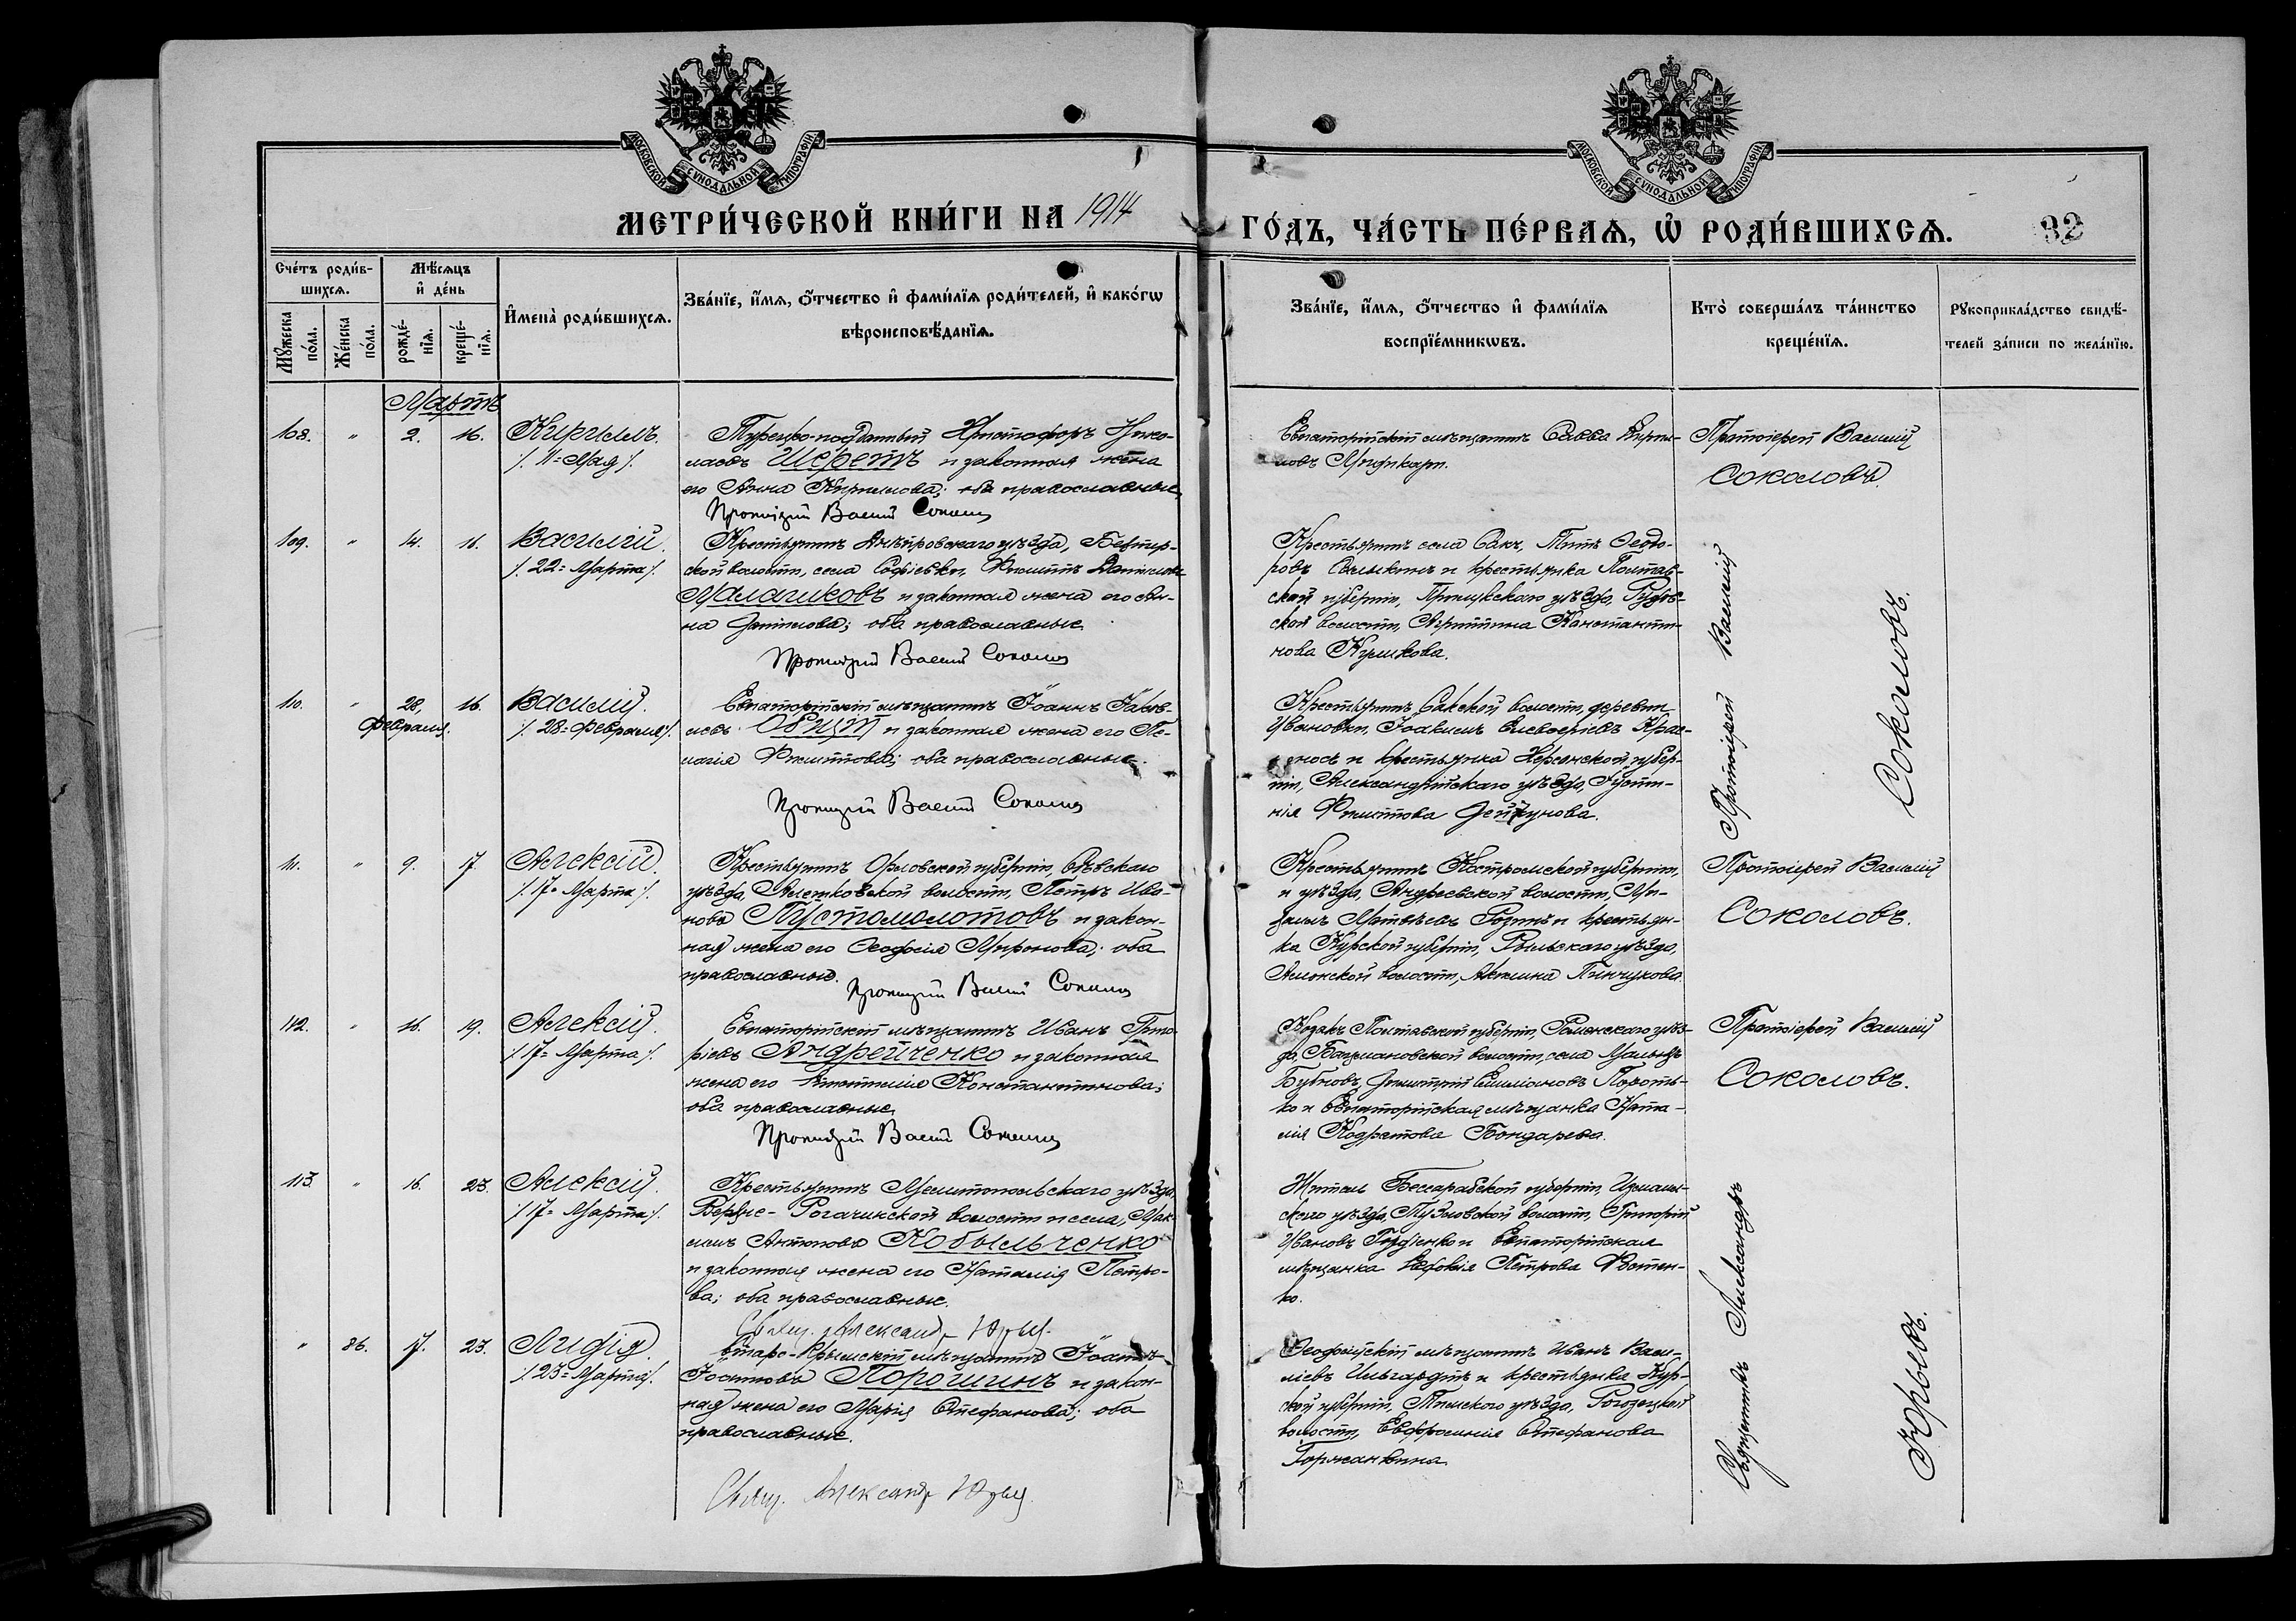 МОСКОВСКОЙ СѴНОДАЛЬНОЙ ТИПОГРАФІИ
МОСКОВСКОЙ СѴНОДАЛЬНОЙ ТИПОГРАФІИ
МЕТРИ́ЧЕСКОЙ КНИ́ГИ НА 1914
ГО́ДЪ, ЧА́СТЬ ПЕ́РВАѦ, Ѡ҆ РОДИ́ВШИХСѦ. 32
Сче́тъ роди́в-
шихсѧ.
Мꙋ́жеска
по́ла.
Же́нска
по́ла.
Мѣ́сѧцъ
и҆ де́нь
рожде́-
нїѧ.
креще́-
нїѧ.
И҆мена̀ роди́вшихсѧ.
Зва́нїе, и҆́мѧ, ѻ҆́тчество и҆ фами́лїѧ роди́телей, и҆ како́гѡ
вѣроисповѣ́данїѧ.
Зва́нїе, и҆́мѧ, ѻ҆́тчество и҆ фами́лїѧ
воспрїе́мникѡвъ.
Кто̀ соверша́лъ та́инство
креще́нїѧ.
Рꙋкоприкла́дство свидѣ́-
телей за́писи по жела́нїю.
Мартъ
108. " 2. 16. Кириллъ.
/. 11= Мая /.
Турецко-подданный Христофоръ Нико-
лаевъ Шеретъ и законная жена
его Анна Кириллова; оба православные.
Протоіерей Василій Соколовъ
Евпаторійскій мѣщанинъ Савва Кирил-
ловъ
Протоіерей Василій
Соколовъ.
109. " 14. 16. Василій.
/. 22= Марта /.
Крестьянинъ Днѣпровскаго уѣзда,
ской волости, села Софіевки, Филиппъ Даниловъ
Малашковъ и законная жена его
на Данилова; оба православные.
Протоіерей Василій Соколовъ
Крестьянинъ села Саки, Титъ Ѳеодо-
ровъ и крестьянка Полтав-
ской губерніи, Прилукскаго уѣзда,
ской волости, Агриппина Константи-
нова Куликова.
Протоіерей Василій
Соколовъ.
110. " 28, 16. Василій.
Февраля.
/. 28= Февраля /.
Евпаторійскій мѣщанинъ Іоаннъ Іаков-
левъ и законная жена его Пе-
лагія Филиппова; оба православные.
Протоіерей Василій Соколовъ
Крестьянинъ Сакской волости, деревни
Ивановки, Іоакимъ
и крестьянка Херсонской губер-
ніи, Александрійскаго уѣзда, Іусти-
нія Филиппова
111. " 9. 17. Алексій.
/. 17= Марта /.
Крестьянинъ Орловской губерніи, Сѣвскаго
уѣзда, волости, Петръ Ива-
новъ Пустомолотовъ и закон-
ная жена его Ѳеодосія Миронова; оба
православные.
Протоіерей Василій Соколовъ
Крестьянинъ Костромской губерніи,
и уѣзда, Андреевской волости, Ми-
хаилъ Матвѣевъ Розинъ и крестьян-
ка Курской губерніи, Рыльскаго уѣзда,
волости, Акилина Пинчукова.
Протоіерей Василій
Соколовъ.
112. " 16. 19. Алексій.
/. 17= Марта /.
Евпаторійскій мѣщанинъ Иванъ Григо-
ріевъ Андрейченко и законная
жена его Константинова;
оба православные.
Протоіерей Василій Соколовъ
Козакъ Полтавской губерніи, Роменскаго уѣз-
да, волости, села Малыхъ
Бубновъ, Димитрій
ко и Евпаторійская мѣщанка Ната-
лія Кодратова Бондарева.
Протоіерей Василій
Соколовъ.
113. " 16. 23. Алексій.
/. 17= Марта /.
Крестьянинъ Мелитопольскаго уѣзда,
Верхне-Рогачинской волости и села, Мак-
симъ Антоновъ Кобыльченко
и законная жена его Наталія Петро-
ва; оба православные.
Свящ. Александръ Юрьевъ.
Житель Бессарабской губерніи, Измаиль-
скаго уѣзда, волости, Григорій
Ивановъ и Евпаторійская
мѣщанка Евдокія Петрова Фотен-
ко.
Священникъ Александръ
Юрьевъ.
" 86. 17. 23. Лидія.
/. 23= Марта /.
Старо-Крымскій мѣщанинъ Іоаннъ
Іоанновъ Порошинъ и закон-
ная жена его Марія Стефанова; оба
православные.
Свящ. Александръ Юрьевъ.
Ѳеодосійскій мѣщанинъ Иванъ Васи-
ліевъ и крестьянка Кур-
ской губерніи, Тимскаго уѣзда, Рогозецкой
волости, Евфросинія Стефанова